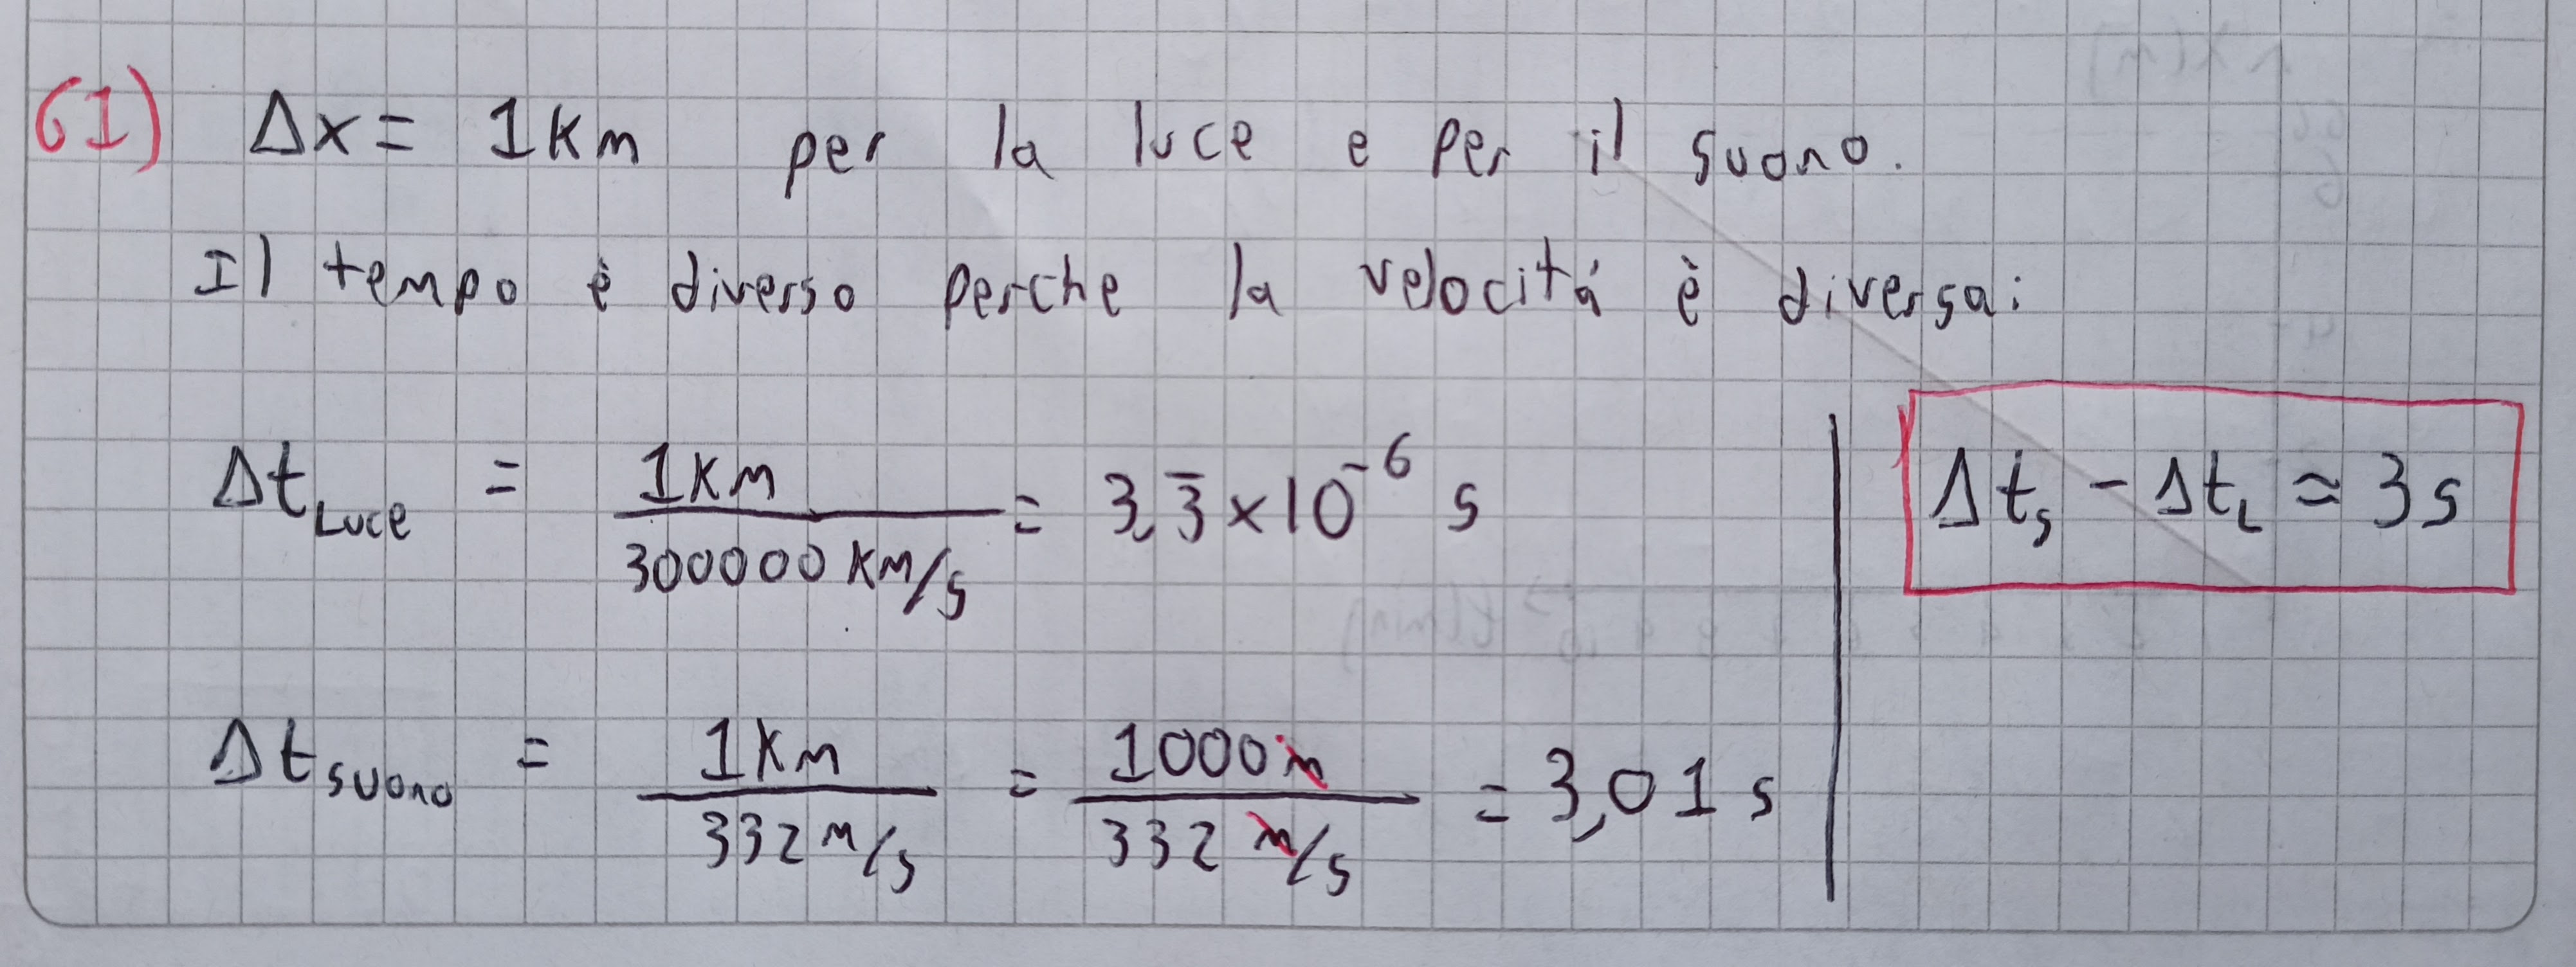 61) Δx = 1 Km per la luce e per il suono.
Il tempo è diverso perche la velocitá è diversa:
Δt_Luce = 1 Km / 300000 Km/s = 3,3̅ × 10⁻⁶ s
Δt_s - Δt_L ≃ 3 s
Δt_suono = 1 Km / 332 m/s = 1000 m / 332 m/s = 3,01 s